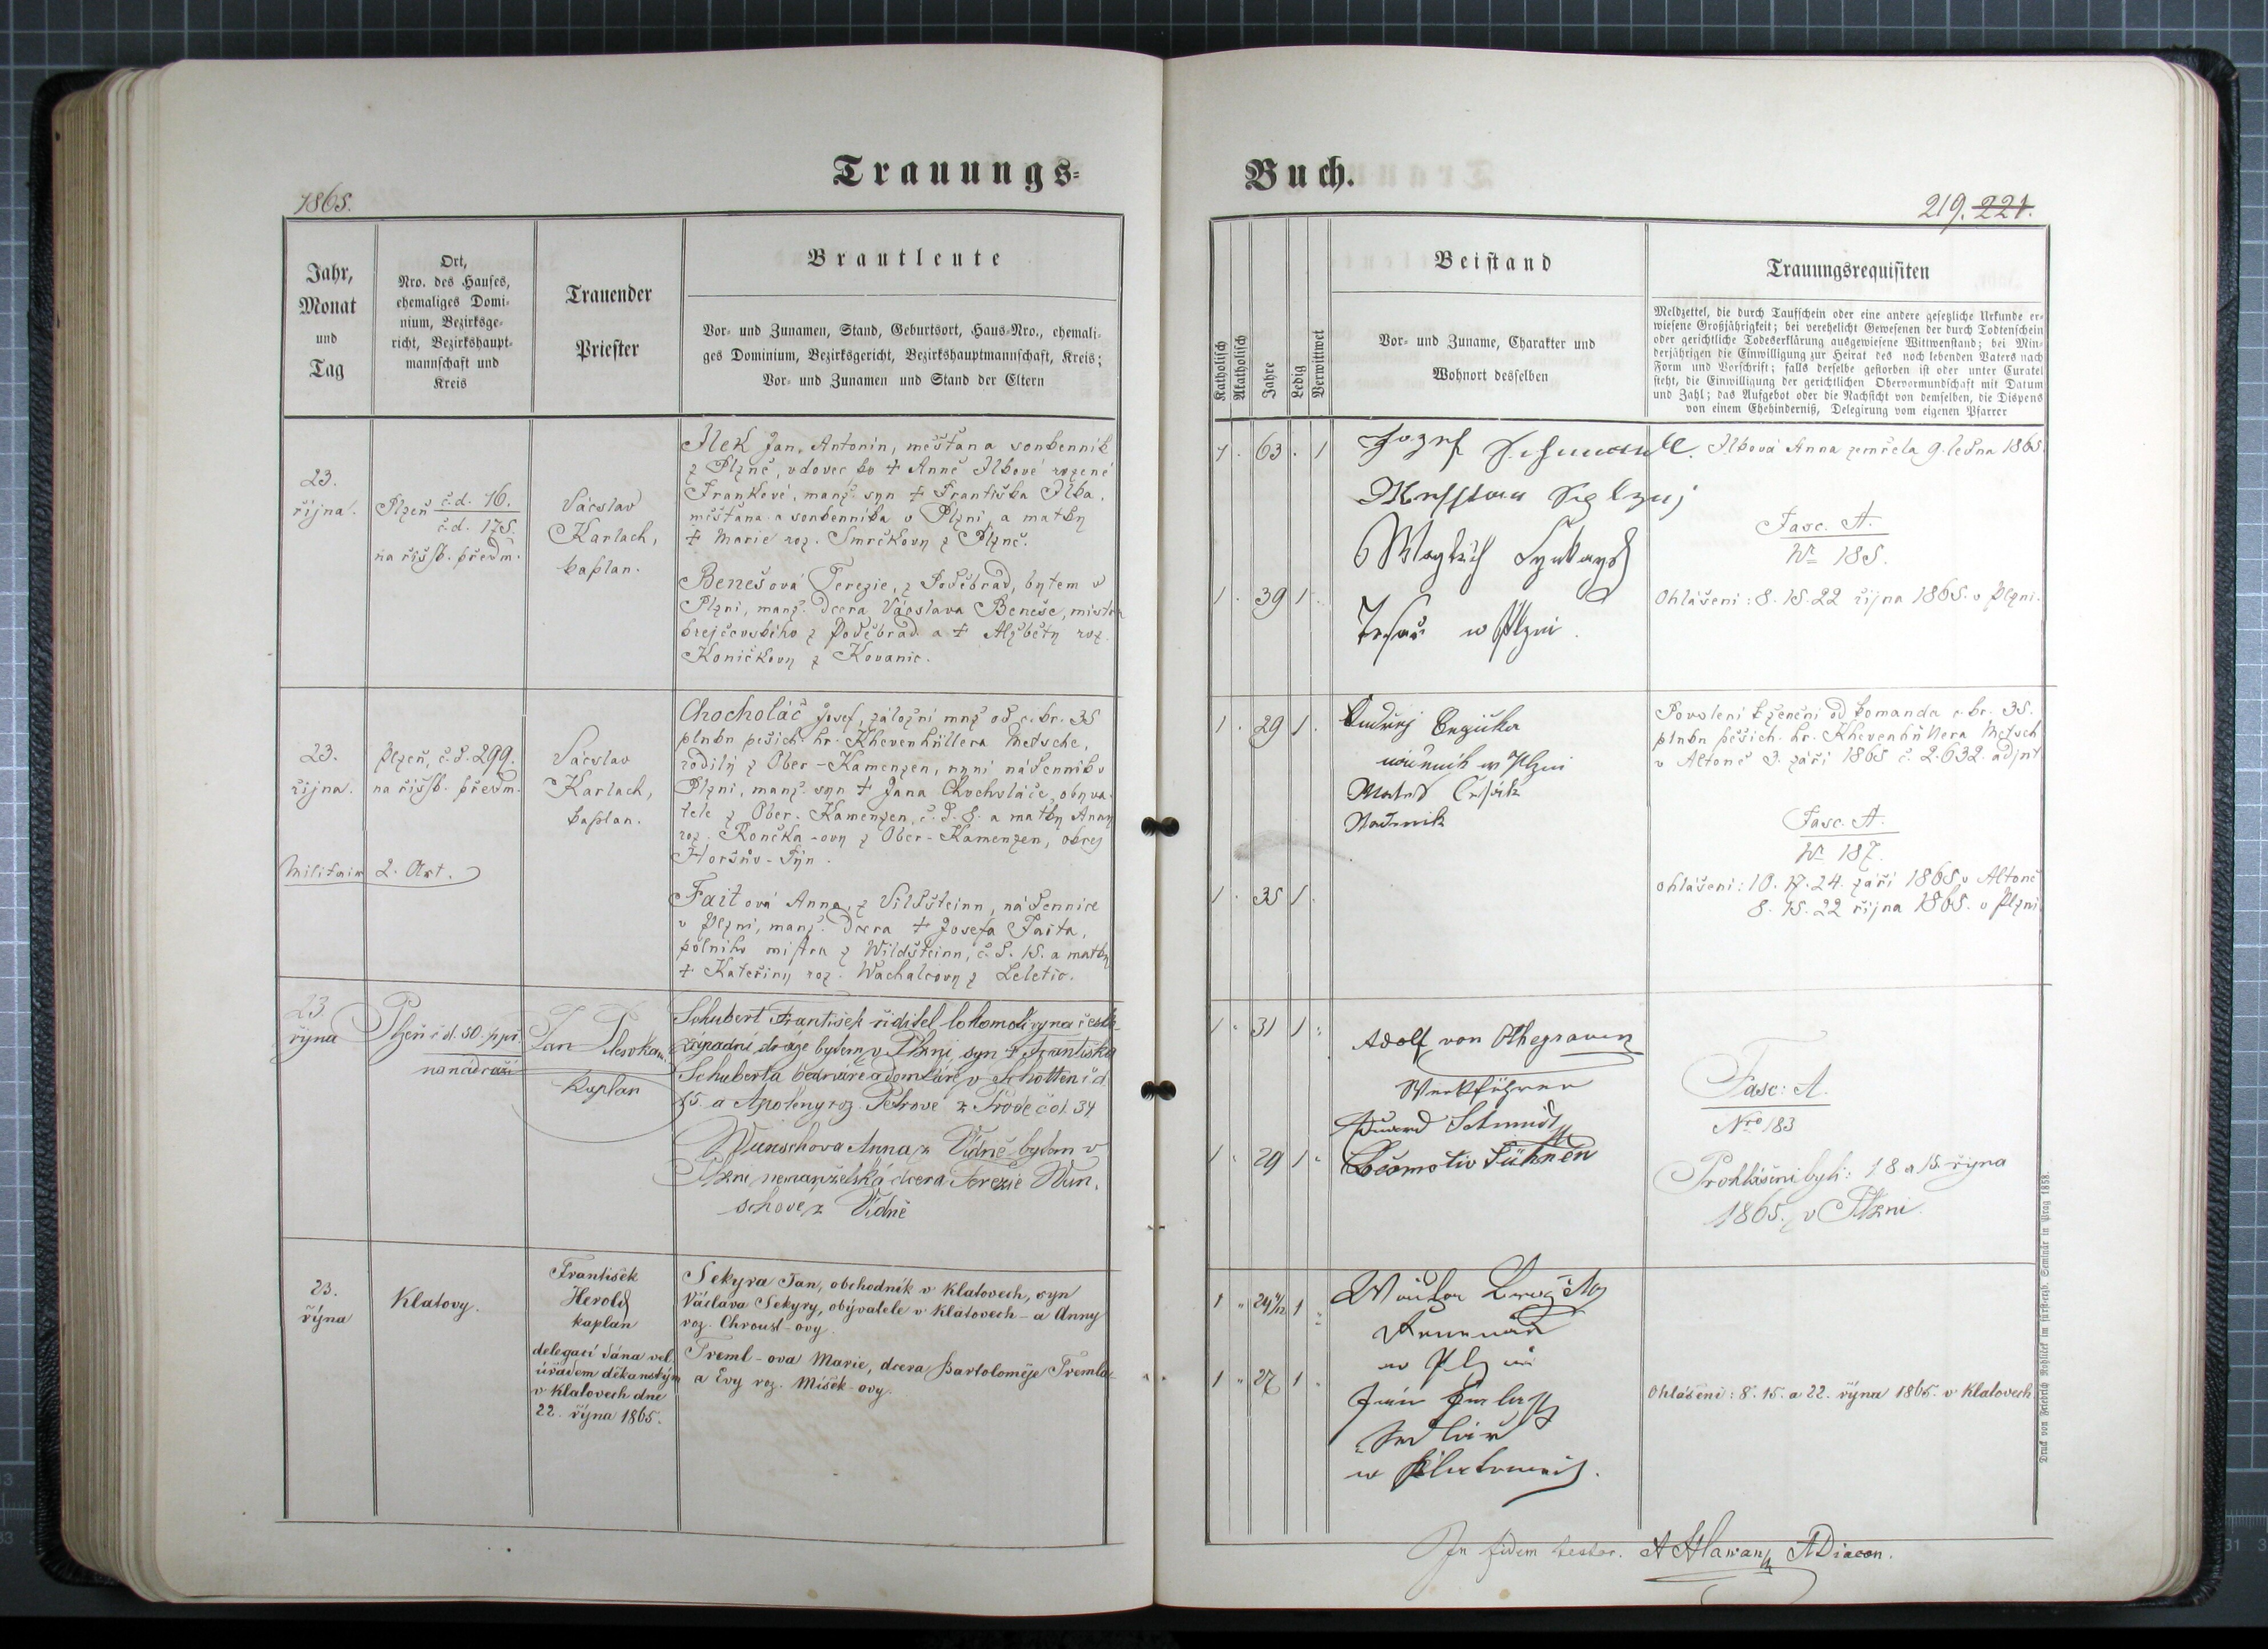 Trauungs-
1865.
Jahr,
Monat
und
Tag
Ort,
Nro. des Hauses,
ehemaliges Domi-
nium, Bezirksge-
richt, Bezirkshaupt-
mannschaft und
Kreis
Trauender
Priester
Brautleute
Vor- und Zunamen, Stand, Geburtsort, Haus-Nro., ehemali-
ges Dominium, Bezirksgericht, Bezirkshauptmannschaft, Kreis;
Vor- und Zunamen und Stand der Eltern
23.
října.
Plzeň č.d. 76.
č.d. 175.
na říšsk. předm.
Václav
Karlach,
kaplan.
Jan, Antonín, měšťan a soukenník
z Plzně, vdovec po + Anně Ilkové rozené
Frankové, manž. syn + Františka Ilka,
měšťana a soukenníka v Plzni, a matky
+ Marie roz. Smrčkovy z Plzně.
Benešová Terezie, z Poděbrad, bytem v
Plzni, manž. dcera Václava Beneše, mistra
krejčovského z Poděbrad a + Alžběty roz.
Koničkovy z Kovanic.
23.
října.
Militair
Plzeň, č.d. 299.
na říšsk. předm.
2. Art.
Václav
Karlach,
kaplan.
Chocholáč Josef, záložní muž od c. kr. 35
pluku pěších hr. Khevenhüllera Metsche,
rodilý z Ober-Kamenzen, nyní nádenník v
Plzni, manž. syn + Jana Chocholáče, obyva-
tele z Ober-Kamenzen, č.d. 8. a matky Anny
roz. Rončka-ovy z Ober-Kamenzen, okres
Horšův-Týn.
Faitová Anna, z Vildšteinn, nádennice
v Plzni, manž. dcera + Josefa Faita,
polního mistra z Wildšteinn, č.d. 15. a matky
+ Kateřiny roz. Wachalcovy z Letetic.
23
října
Plzeň č d. 50. p. př.
na nádraží
Jan
Kaplan
Schubert František řiditel lokomotivy na česk.
západní dráze bytem v Plzni, syn + Františka
Schuberta bednáře a domkáře v Schotten č d
15. a Apoleny roz. Petrové z č d. 34
Wunschova Anna z Vídně bytem v
Plzni nemanželská dcera Terezie Wun-
schove z Vídně
23.
října
Klatovy.
František
Herold
kaplan
delegací dána vel.
úřadem děkanským
v Klatovech dne
22. října 1865.
Sekyra Jan, obchodník v Klatovech, syn
Václava Sekyry, obývatele v Klatovech - a Anny
roz. Chroust-ovy.
Treml-ova Marie, dcera Bartoloměje Tremla
a Evy roz. Míšek-ovy.
Buch.
219. 221.
Katholisch
Akatholisch
Jahre
Ledig
Verwittwet
Beistand
Vor- und Zuname, Charakter und
Wohnort desselben
Trauungsrequisiten
Meldzettel, die durch Taufschein oder eine andere gesetzliche Urkunde er-
wiesene Großjährigkeit; bei verehelicht Gewesenen der durch Todtenschein
oder gerichtliche Todeserklärung ausgewiesene Wittwenstand; bei Min-
derjährigen die Einwilligung zur Heirat des noch lebenden Vaters nach
Form und Vorschrift; falls derselbe gestorben ist oder unter Curatel
steht, die Einwilligung der gerichtlichen Obervormundschaft mit Datum
und Zahl; das Aufgebot oder die Nachsicht von demselben, die Dispens
von einem Ehehinderniß, Delegirung vom eigenen Pfarrer
1 . 63 . 1
1 . 39 1 .
w Plzni.
Ilková Anna zemřela 9. ledna 1865
Fasc. A.
No 185.
Ohlášení: 8. 15. 22 října 1865. v Plzni.
1 . 29 1 .
1 . 35 1 .
w Plzni
Nádenník
Povolení k ženění od komanda c. kr. 35.
pluku pěších. hr. Khevenhüllera Metsch
v Altoně 3. září 1865 č. 2.632. adjnt
Fasc. A.
No 187.
Ohlášení: 10. 17. 24. září 1865 v Altoně
8. 15. 22 října 1865. v Plzni.
1 " 31 1 "
1 " 29 1 "
Adolf von Othegraven
Werkführer
Eduard Schmidt
Locomotiv Führer
Fasc: A.
Nro 183
Prohlášení byli: 1 8 a 15. října
1865. v Plzni.
1 " 24 1 "
1 " 27 1 "
w Plzni
Ohlášení: 8. 15. a 22. října 1865. v Klatovech
In fidem testor. ADiacon.
Druck von Friedrich Rohliček im fürst-erzb. Seminär in Prag 1858.